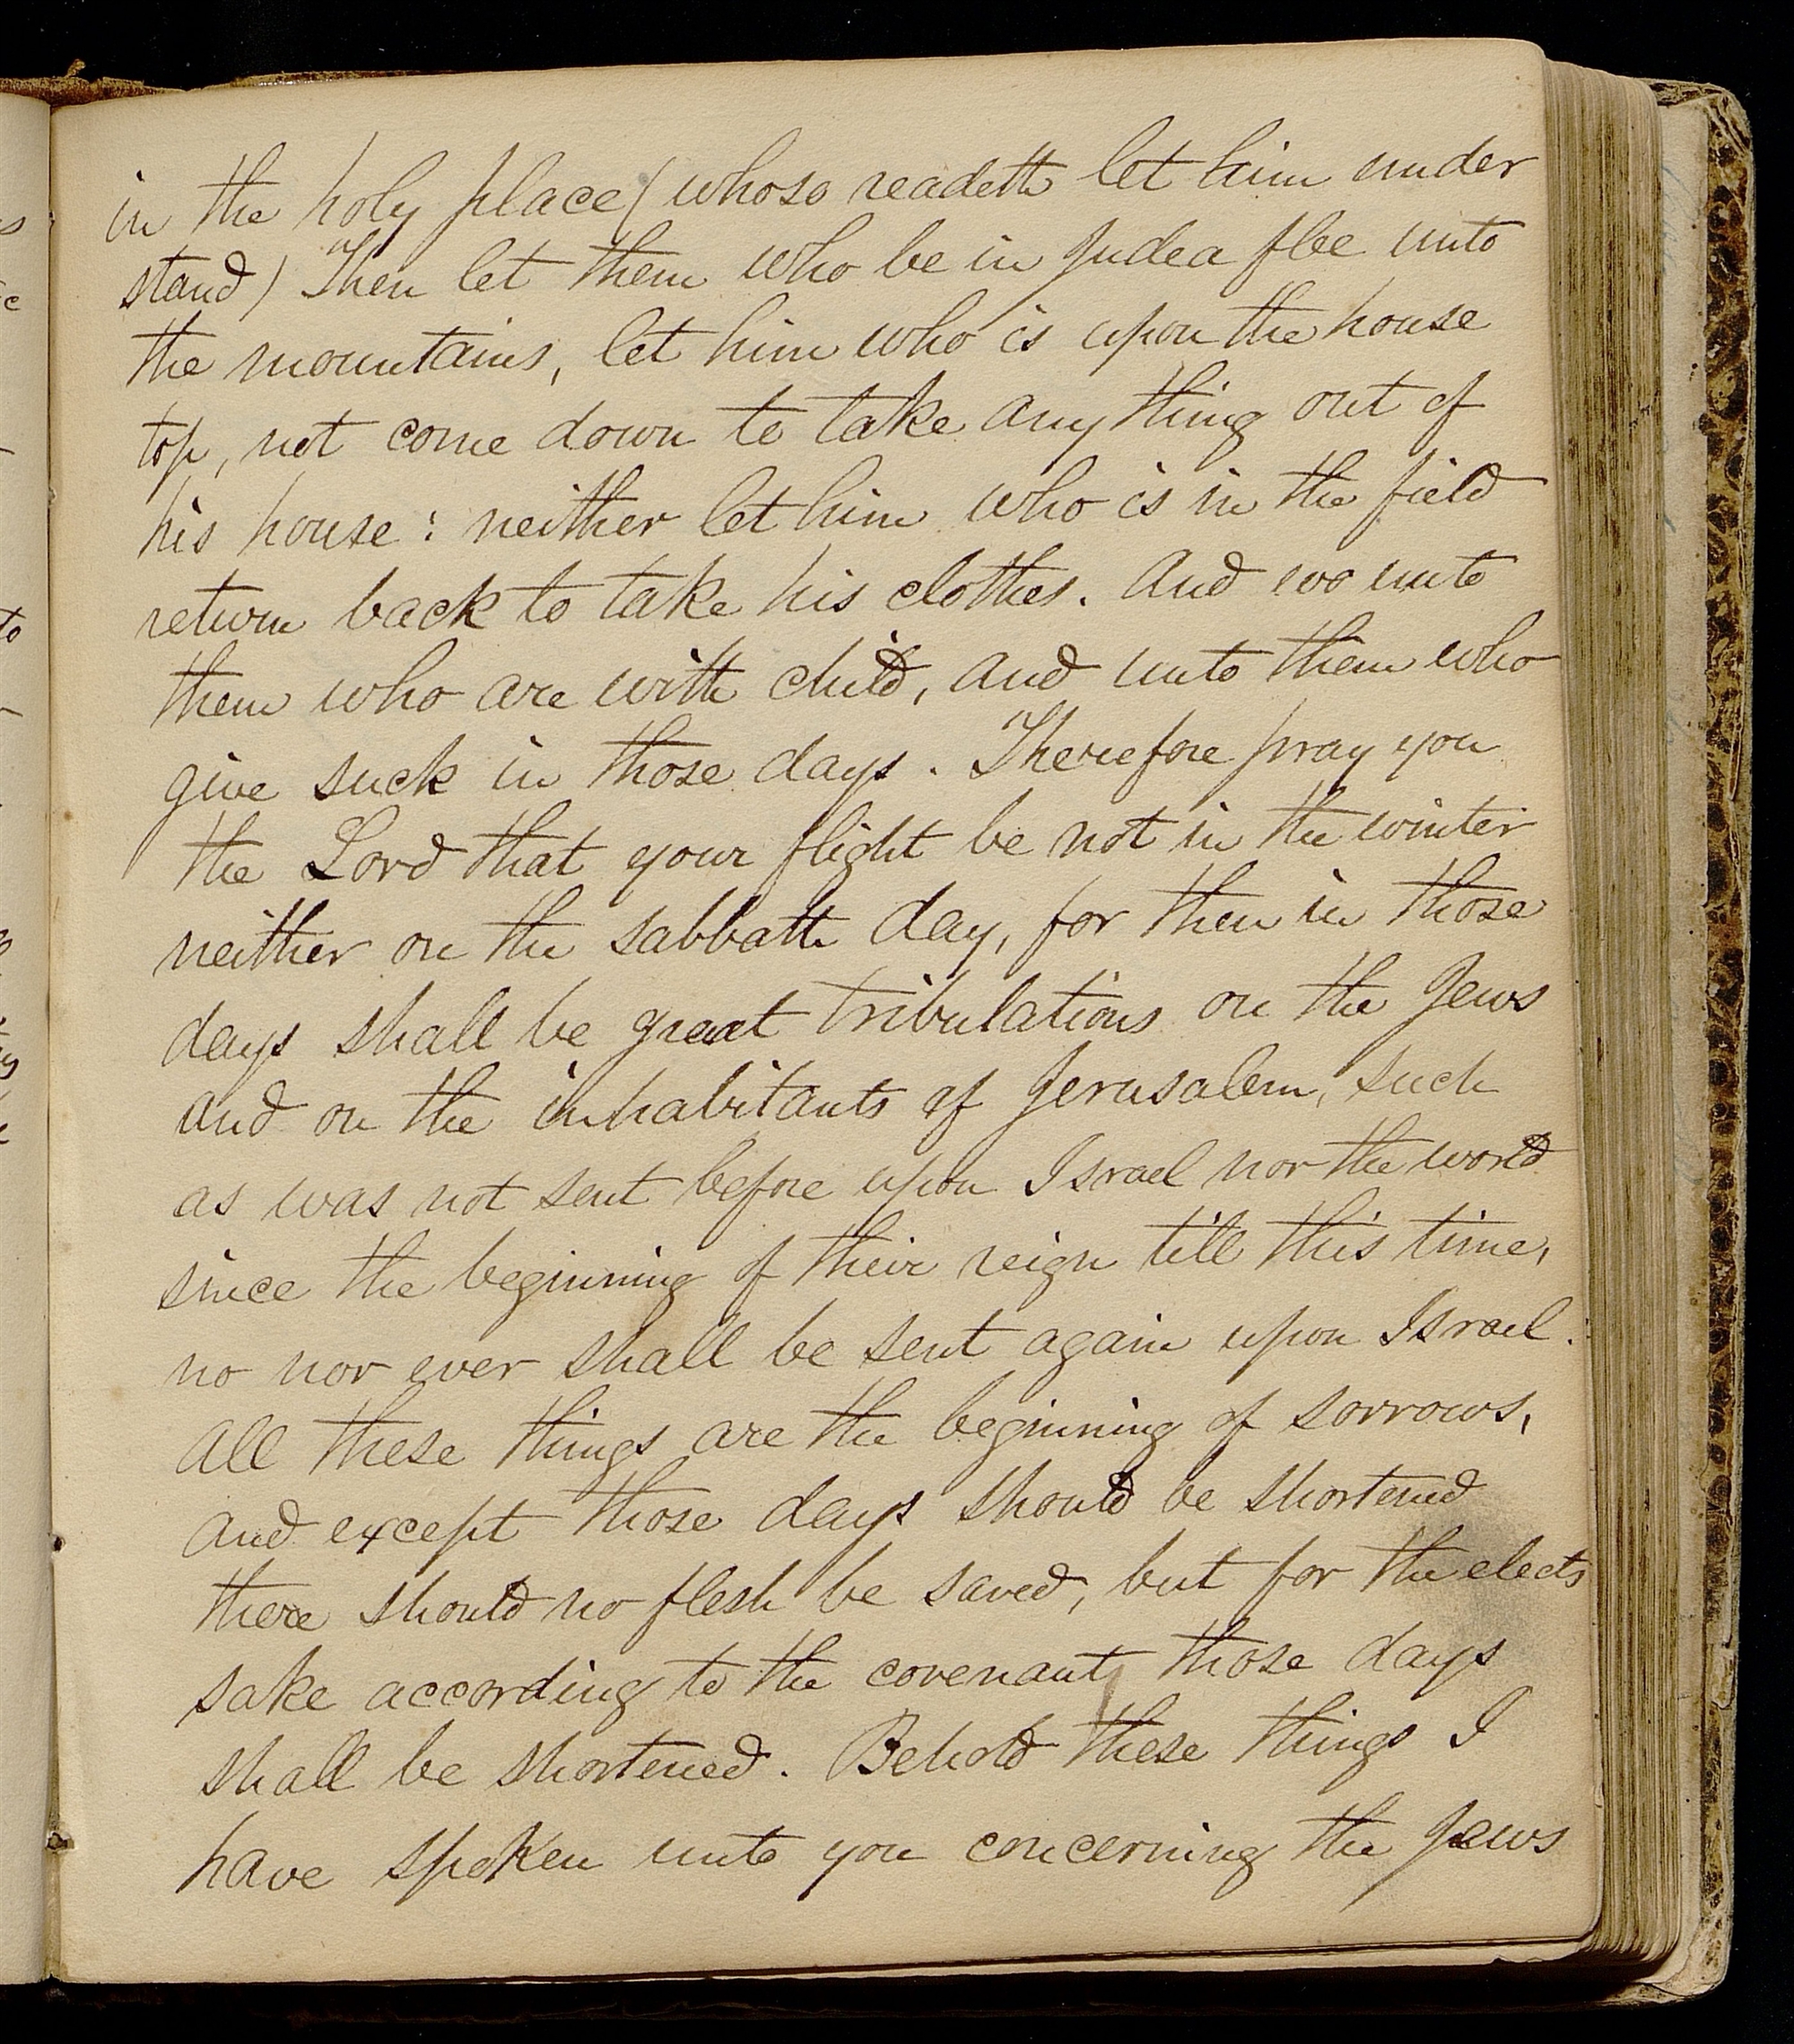 in the holy place (whoso readeth let him under
stand) Then let them who be in Judea flee unto
the mountains, let him who is upon the house
top, not come down to take any thing out of
his house: neither let him who is in the field
return back to take his clothes. And wo unto
them who are with child, and unto them who
give suck in those days. Therefore pray you
the Lord that your flight be not in the winter
neither on the sabbath day, for then in those
days shall be great tribulations on the Jews
and on the inhabitants of Jerusalem, such
as was not sent before upon Israel nor the world
since the beginning of their reign till this time,
no nor ever shall be sent again upon Israel.
All these things are the beginning of sorrows,
and except those days should be shortened
there should no flesh be saved, but for the elects
sake according to the covenant those days
shall be shortened. Behold these things I
have spoken unto you concerning the Jews